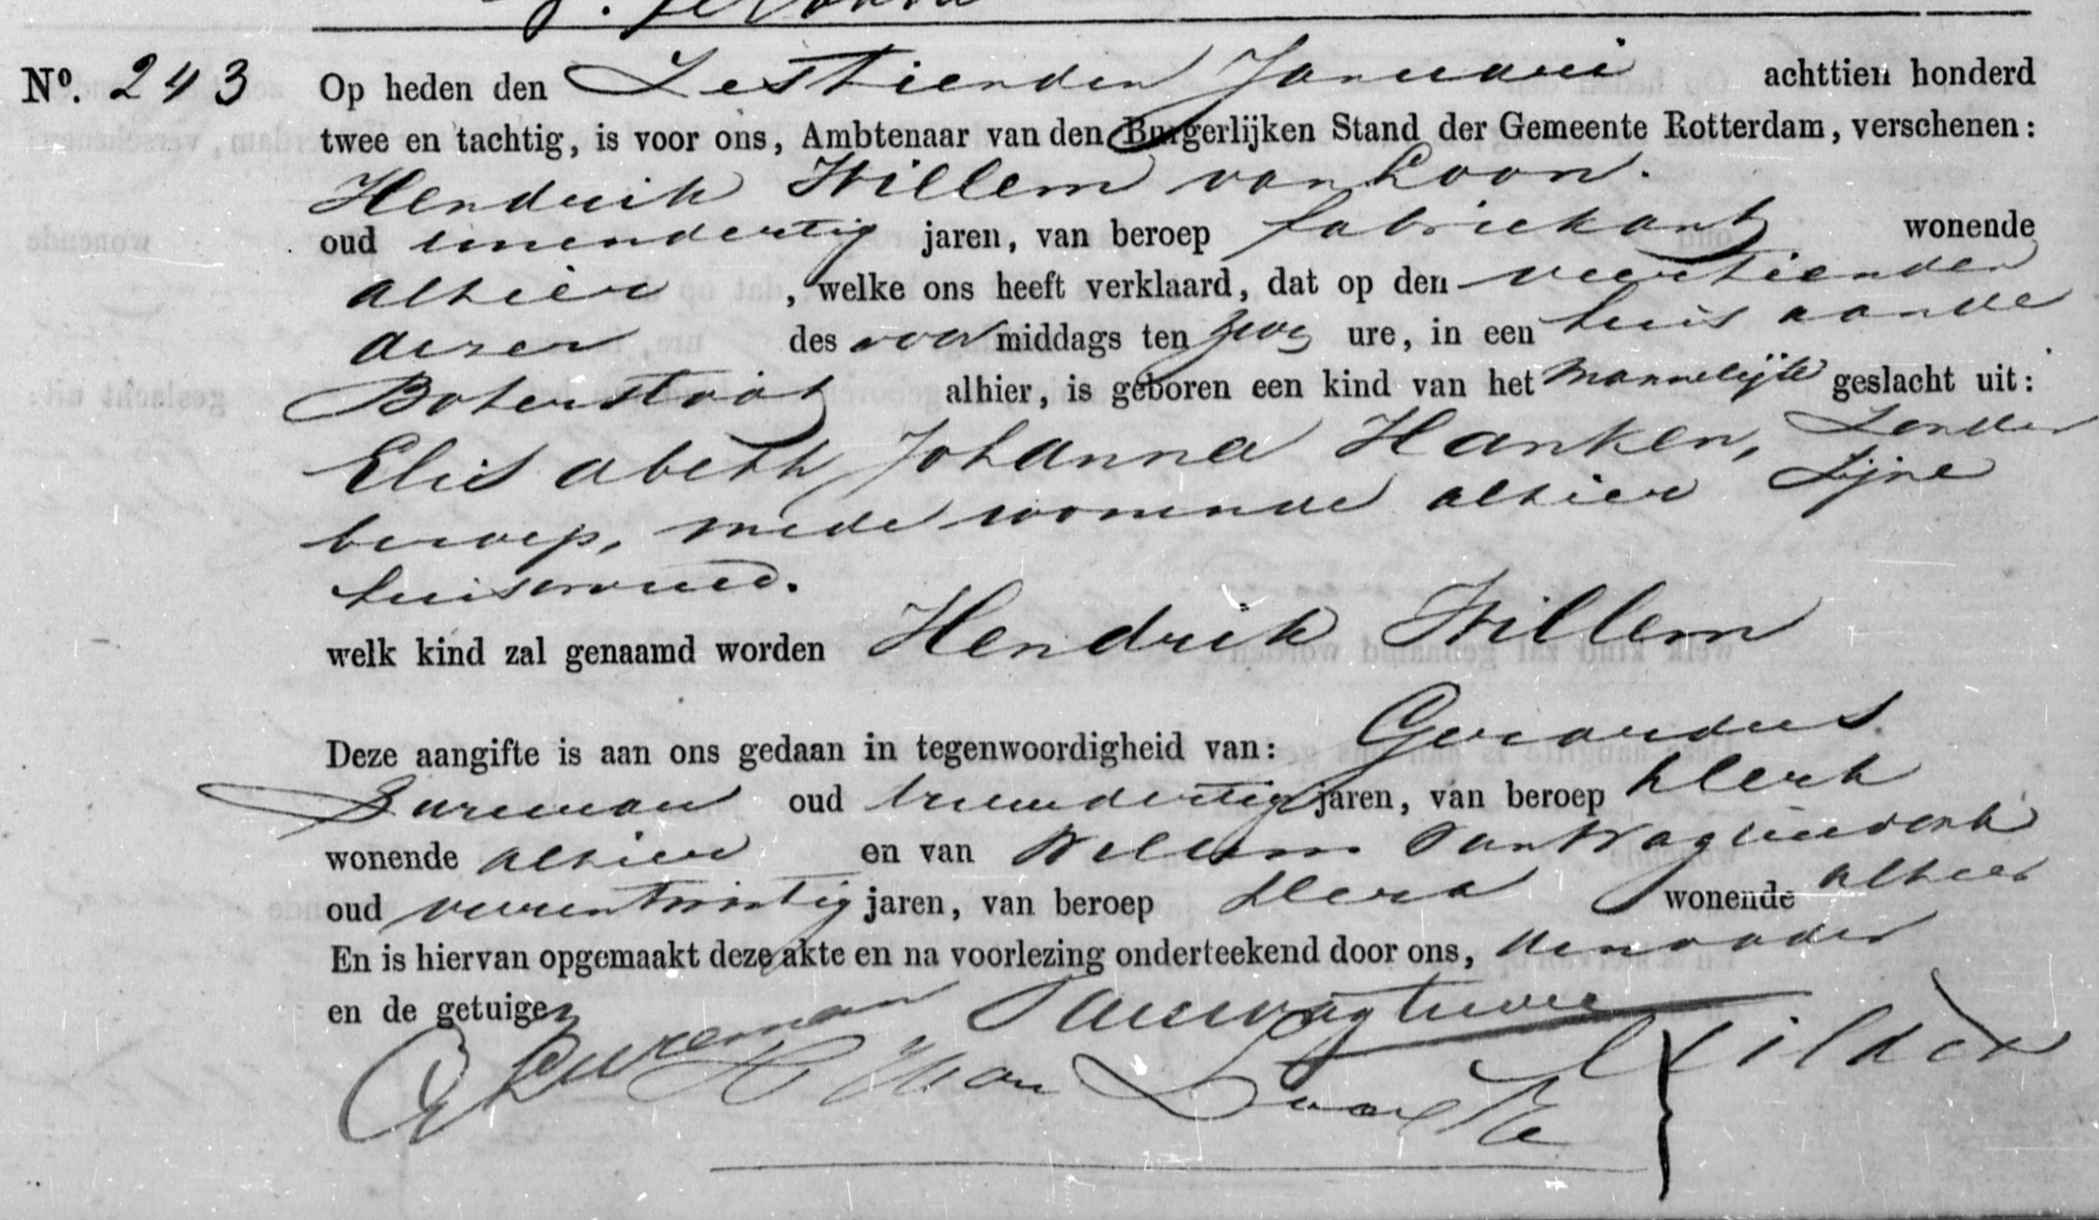 Nº. 243 Op heden den Zestienden Januari achttien honderd
twee en tachtig, is voor ons, Ambtenaar van den Burgerlijken Stand der Gemeente Rotterdam, verschenen:
Hendrik Willem van Loon.
oud eenendertig jaren, van beroep fabriekant wonende
alhier , welke ons heeft verklaard, dat op den veertienden
dezer des voor middags ten zeven ure, in een huis aan de
Boterstraat alhier, is geboren een kind van het Mannelijke geslacht uit:
Elisabeth Johanna Hanken, Zonder
beroep, mede wonende alhier Zijne
huisvrouw.
welk kind zal genaamd worden Hendrik Willem
Deze aangifte is aan ons gedaan in tegenwoordigheid van: Gerardus
Bureman oud jaren, van beroep klerk
wonende alhier en van Willem
oud vierentwintig jaren, van beroep klerk wonende alhier
En is hiervan opgemaakt deze akte en na voorlezing onderteekend door ons, den vader
en de getuigen
Bureman
H W van Loon